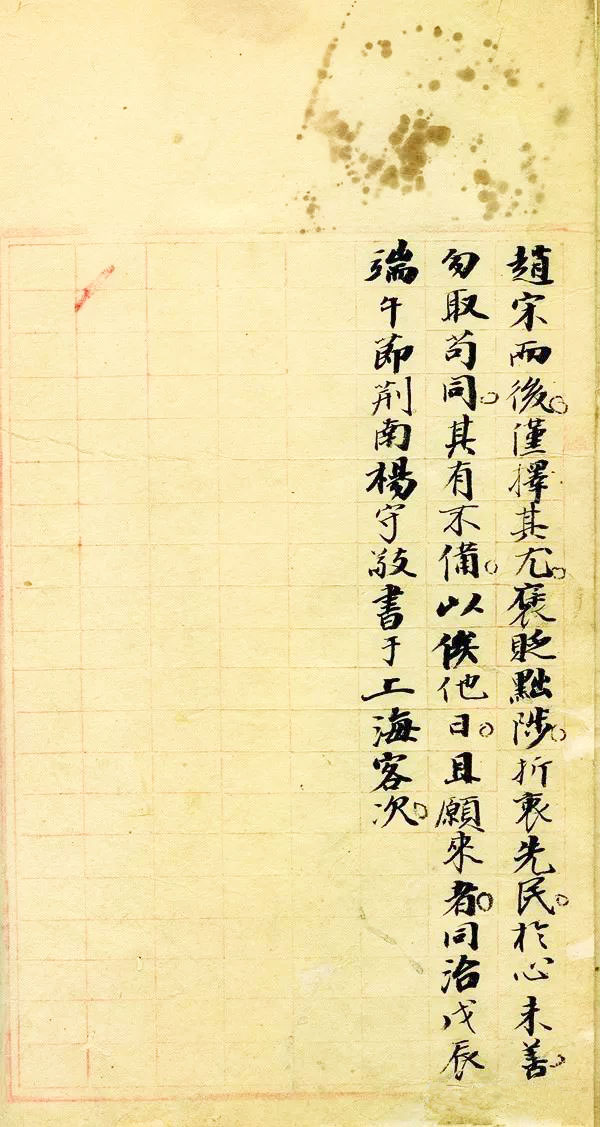 趙宋而後。僅擇其尤。褒貶黜陟。折衷先民。於心未善。
勿取苟同。其有不備。以俟他日。且願來者。同治戊辰
端午節荆南楊守敬書于上海客次。